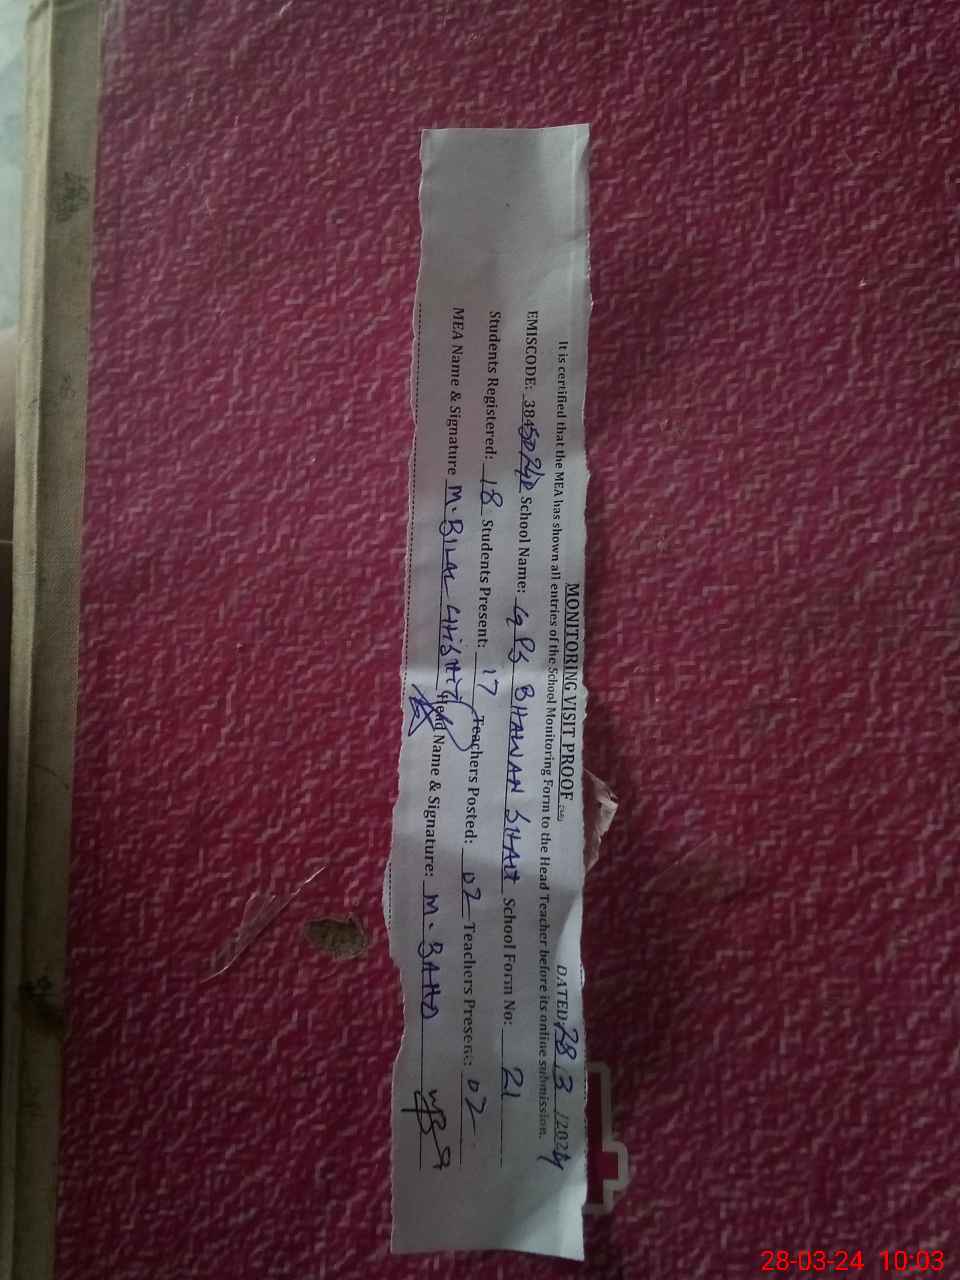 MONITORING VISIT PROOF
DATED: 28/3/2024
It is certified that the MEA has shown all entries of the School Monitoring Form to the Head Teacher before its online submission.
EMISCODE: 384502 School Name: GPS BHAWAN SHAH School Form No: 21
Students Registered: 18 Students Present: 17 Teachers Posted: 02 Teachers Present: 02
MEA Name & Signature M. BILAL CHISHTI Head Name & Signature: M. BAHD
28-03-24 10:03